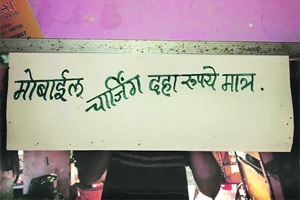 मोबाईल चार्जिंग दहा रूपये मात्र.